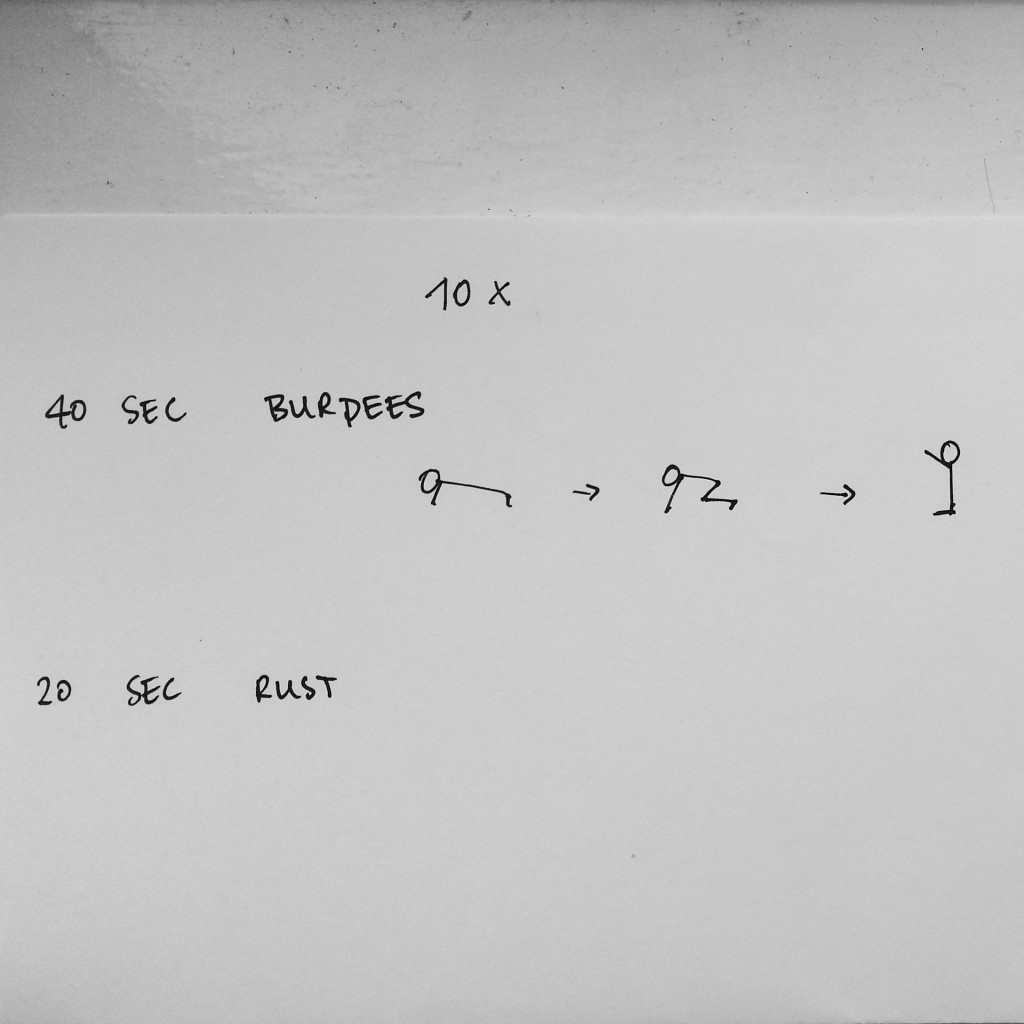 10 x
40 SEC BURPEES
→ →
20 SEC RUST